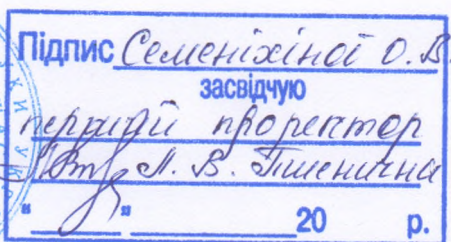 Підпис Семеніхіної О.В.
засвідчую
перший проректор
Л. В. Пшенична
“ ” 20 р.